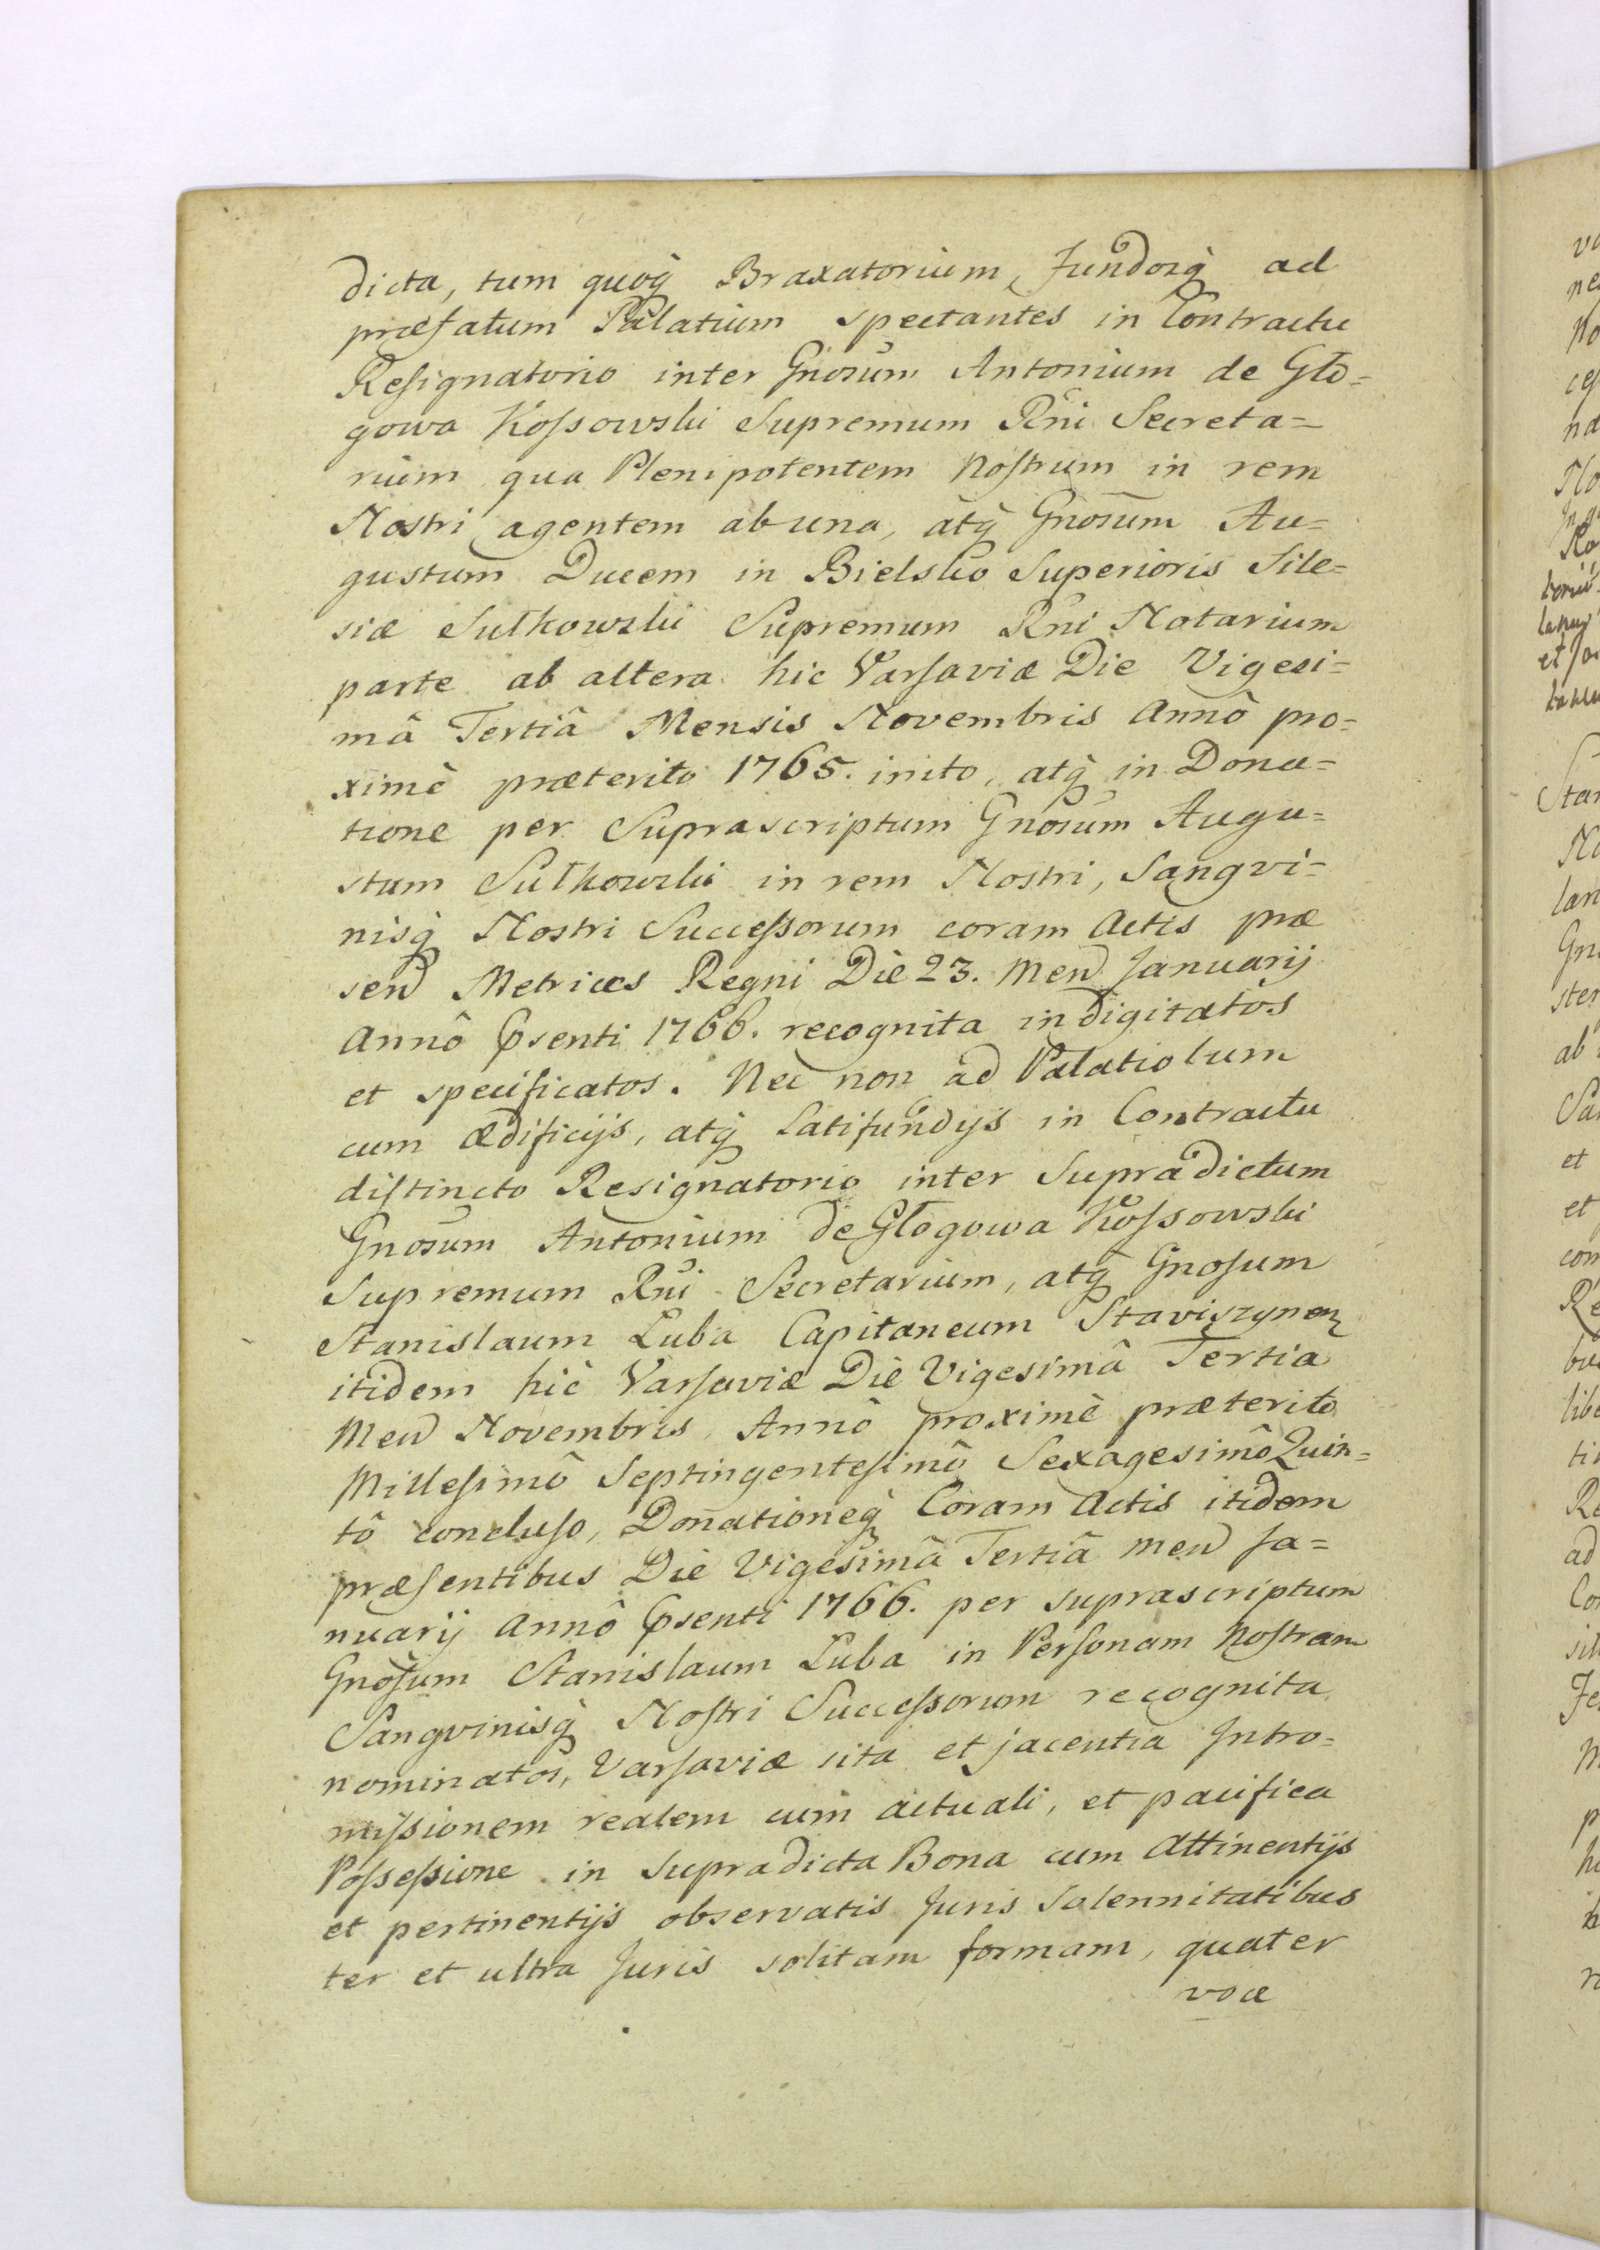 dicta, tum quoq̀ Braxatorium, fundosq̀ ad
præfatum Palatium spectantes in Contractu
Resignatorio inter Gnosum Antonium de Gło=
gowa Kossowski Supremum Rñi Secreta=
rium qua Plenipotentem Nostrum in rem
Nostri agentem ab una, atq̀ Gnosum Au=
gustum Ducem in Bielsko Superioris Sile=
siæ Sułkowski Supremum Rñi Notarium
parte ab altera hic Varsaviæ Die Vigesi=
mâ Tertiâ Mensis Novembris Annô pro=
ximè præterito 1765. inito, atq̀ in Dona=
tione per Suprascriptum Gnosum Augu=
stum Sułkowski in rem Nostri, Sangvi=
nisq̀ Nostri Successorum coram Actis præ
sen Metrices Regni Die 23. Men Januarij
Annô Psenti 1766. recognita indigitatos
et specificatos. Nec non ad Palatiolum
cum ædificijs, atq̀ Latifundijs in Contractu
distincto Resignatorio inter Supradictum
Gnosum Antonium de Głogowa Kossowski
Supremum Rñi Secretarium, atq̀ Gnosum
Stanislaum Luba Capitaneum Staviszynen
itidem hic Varsaviæ Die Vigesimâ Tertia
Men Novembris Annô proximè præterito
Millesimô Septingentesimô Sexagesimô Quin=
tô concluso, Donationeq̀ Coram Actis itidem
præsentibus Die Vigesimâ Tertiâ Men Ja=
nuarij Annô Psenti 1766. per suprascriptum
Gnosum Stanislaum Luba in Personam Nostram
Sangvinisq̀ Nostri Successorum recognita
nominatos, Varsaviæ sita et jacentia Intro=
missionem realem cum actuali, et pacifica
Possessione in Supradicta Bona cum Attinentijs
et pertinentijs observatis Juris Solennitatibus
ter et ultra Juris solitam formam, quater
voce